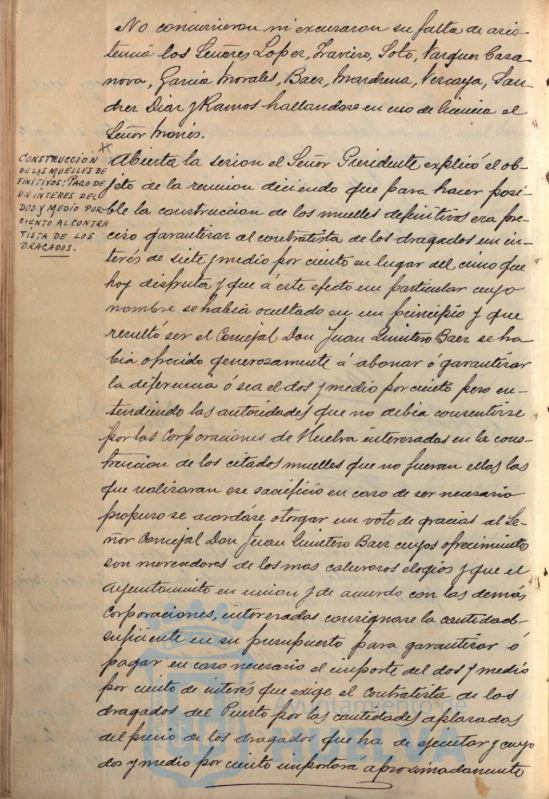 No concurrieron ni excusaron su falta de asis-
tencia los Señores Lopez, Traviero, Soto, Vazquez Casa
nova, Garcia Morales, Baez, Mardrena, Vercaya, San-
chez Diaz y Ramos hallandose en uso de licencia el
Señor Monis.
CONSTRUCCIÓN
DE LOS MUELLES DE-
FINITIVOS: PAGO DE
UN INTERES DEL
DOS Y MEDIO POR
CIENTO AL CONTRA
TISTA DE LOS
DRAGADOS.
Abierta la sesion el Señor Presidente explicó el ob-
jeto de la reunion diciendo que para hacer posi-
ble la construccion de los muelles definitivos era pre-
ciso garantizar al contratista de los dragados un in-
terés de siete y medio por ciento en lugar del cinco que
hoy disfruta y que á este efecto un particular cuyo
nombre se habia ocultado en un principio y que
resultó ser el Concejal Don Juan Quintero Baez se ha-
bia ofrecido generosamente á abonar ó garantizar
la diferencia ó sea el dos y medio por ciento pero en-
tendiendo las autoridades que no debia consentirse
por las Corporaciones de Huelva interesadas en la cons-
truccion de los citados muelles que no fueran ellas las
que realizaran ese sacrificio en caso de ser necesario
propuso se acordáse otorgar un voto de gracias al Se-
ñor Concejal Don Juan Quintero Baez cuyos ofrecimientos
son merecedores de los mas calurosos elogios y que el
Ayuntamiento en union y de acuerdo con las demas
Corporaciones, interesadas consignare la cantidad
suficiente en su presupuesto para garantizar ó
pagar en caso necesario el importe del dos y medio
por ciento de interés que exige el Contratista de los
dragados del Puerto por las cantidades aplazadas
del precio de los dragados que ha de ejecutar y cuyo
dos y medio por ciento importara aproximadamente
Ayuntamiento de
HUELVA